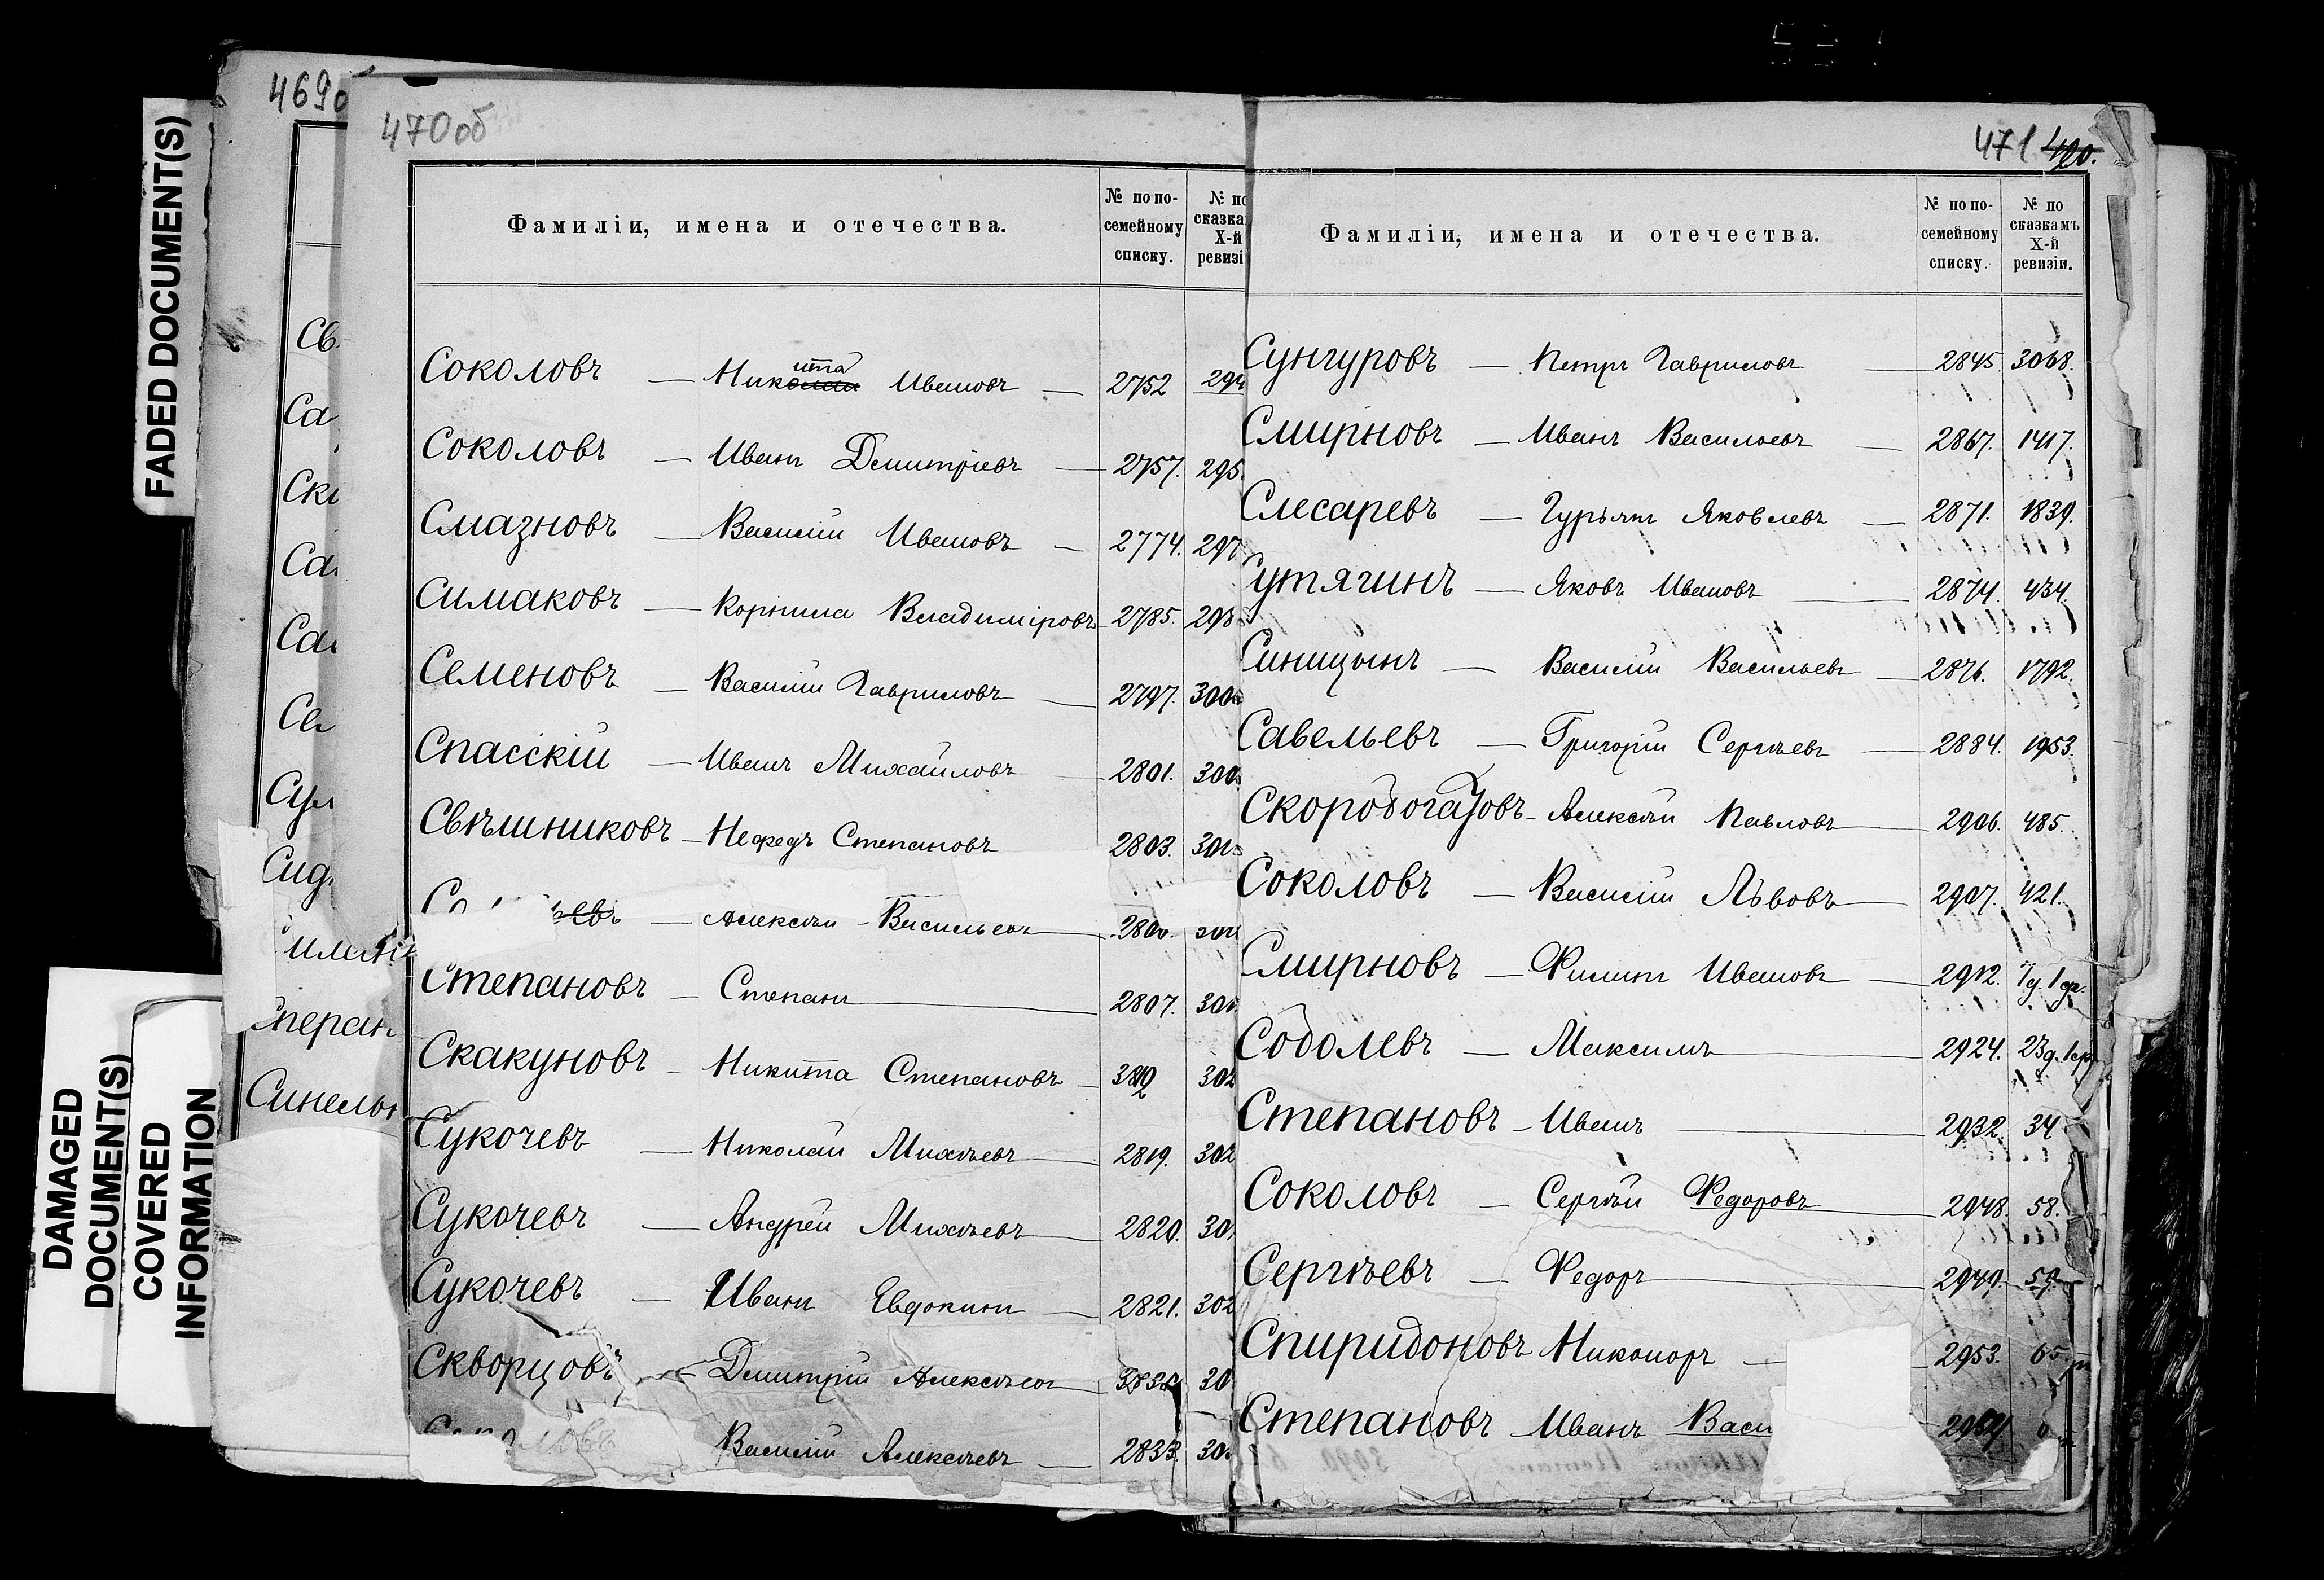 FADED DOCUMENT(S)
DAMAGED
DOCUMENT(S)
COVERED
INFORMATION
Св
Са
Ск
Са
Са
Се
Сул
Сид
перан
Синель
470об
Фамиліи, имена и отечества.
№ по по-
семейному
списку.
№ по
сказка
X-й
ревизі
Соколовъ — Никита Ивановъ — 2752 294
Соколовъ — Иванъ Дмитріевъ — 2757. 295.
Смазновъ — Василій Ивановъ — 2774. 297
Симаковъ — Корнила Владиміровъ 2785. 298
Семеновъ — Василій Гавриловъ — 2797. 300
Спасскій — Иванъ Михайловъ 2801. 300
Свѣшниковъ — Нефедъ Степановъ 2803. 301
евъ — Алексѣй Васильевъ
Степановъ — Степанъ 2807. 30
Скакуновъ — Никита Степановъ — 302
Сукочевъ — Николай Михѣевъ 2819. 302
Сукочевъ — Андрей Михѣевъ 2820. 30
Сукочевъ — Иванъ Евдокимъ — 2821. 302
Скворцовъ — Дмитрій Алексѣевъ 30
Василій Алексѣевъ — 2833. 30
471 420.
Фамиліи, имена и отечества.
№ по по-
семейному
списку.
№ по
сказкамъ
X-й
ревизіи.
Сунгуровъ — Петръ Гавриловъ 2845 3068.
Смирновъ — Иванъ Васильевъ 2867. 1417.
Слесаревъ — Гурьянъ Яковлевъ — 2871. 1839.
Сутягинъ — Яковъ Ивановъ 2874. 434.
Синицынъ — Василій Васильевъ 2876. 1792.
Савельевъ — Григорій Сергѣевъ 2884. 1953.
Скоробогатовъ — Алексѣй Павловъ 2906. 485.
Соколовъ — Василій Львовъ 2907. 421.
Смирновъ — Филипъ Ивановъ 2912. 7д. 1ср.
Соболевъ — Максимъ 2924. 23д. 1ср
Степановъ — Иванъ 2932. 34
Соколовъ — Сергѣй Федоровъ 2948. 58.
Сергѣевъ — Федоръ 2949. 59
Спиридоновъ Никаноръ — 2953. 65
Степановъ — Иванъ Васи